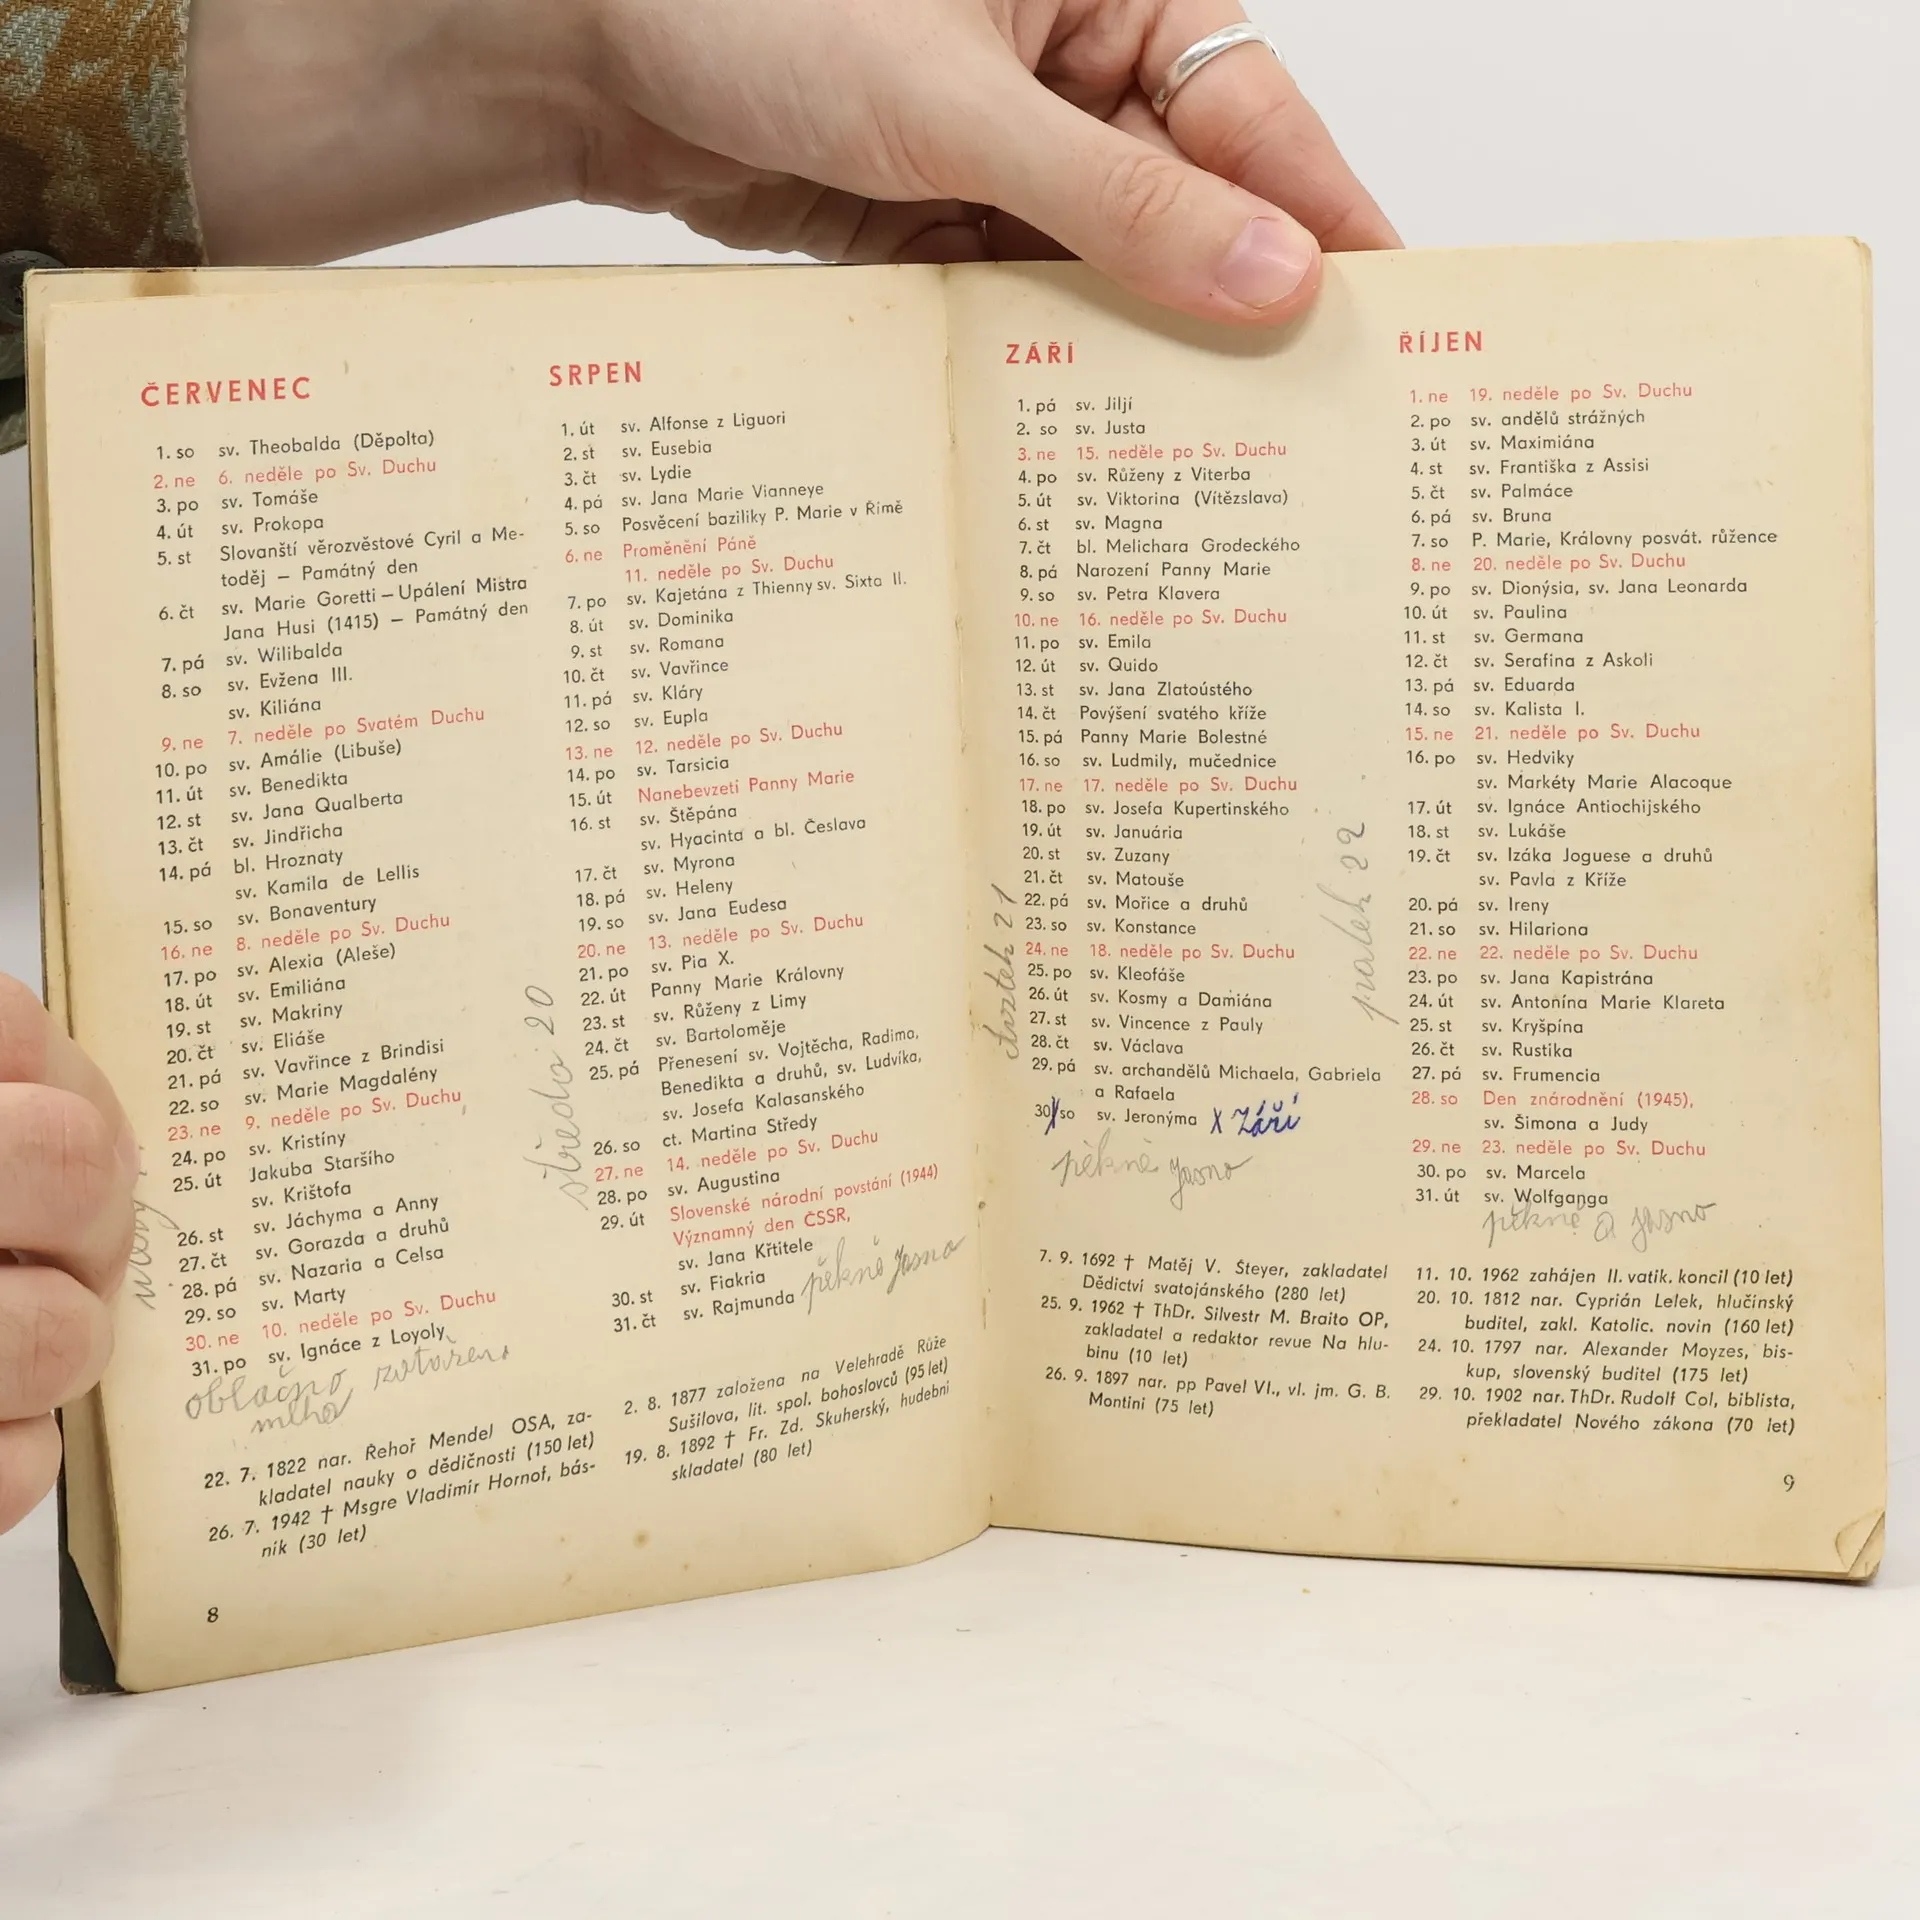 ČERVENEC
1. so sv. Theobalda (Děpolta)
2. ne 6. neděle po Sv. Duchu
3. po sv. Tomáše
4. út sv. Prokopa
5. st Slovanští věrozvěstové Cyril a Me-
toděj – Památný den
6. čt sv. Marie Goretti – Upálení Mistra
Jana Husi (1415) – Památný den
7. pá sv. Wilibalda
8. so sv. Evžena III.
sv. Kiliána
9. ne 7. neděle po Svatém Duchu
10. po sv. Amálie (Libuše)
11. út sv. Benedikta
12. st sv. Jana Qualberta
13. čt sv. Jindřicha
14. pá bl. Hroznaty
sv. Kamila de Lellis
15. so sv. Bonaventury
16. ne 8. neděle po Sv. Duchu
17. po sv. Alexia (Aleše)
18. út sv. Emiliána
19. st sv. Makriny
20. čt sv. Eliáše
21. pá sv. Vavřince z Brindisi
22. so sv. Marie Magdalény
23. ne 9. neděle po Sv. Duchu
24. po sv. Kristíny
25. út Jakuba Staršího
sv. Krištofa
26. st sv. Jáchyma a Anny
27. čt sv. Gorazda a druhů
28. pá sv. Nazaria a Celsa
29. so sv. Marty
30. ne 10. neděle po Sv. Duchu
31. po sv. Ignáce z Loyoly
oblačno zataženo
mlha
22. 7. 1822 nar. Řehoř Mendel OSA, za-
kladatel nauky o dědičnosti (150 let)
26. 7. 1942 † Msgre Vladimír Hornof, bás-
ník (30 let)
8
středa 20
SRPEN
1. út sv. Alfonse z Liguori
2. st sv. Eusebia
3. čt sv. Lydie
4. pá sv. Jana Marie Vianneye
5. so Posvěcení baziliky P. Marie v Římě
6. ne Proměnění Páně
11. neděle po Sv. Duchu
7. po sv. Kajetána z Thienny sv. Sixta II.
8. út sv. Dominika
9. st sv. Romana
10. čt sv. Vavřince
11. pá sv. Kláry
12. so sv. Eupla
13. ne 12. neděle po Sv. Duchu
14. po sv. Tarsicia
15. út Nanebevzetí Panny Marie
16. st sv. Štěpána
sv. Hyacinta a bl. Česlava
17. čt sv. Myrona
18. pá sv. Heleny
19. so sv. Jana Eudesa
20. ne 13. neděle po Sv. Duchu
21. po sv. Pia X.
22. út Panny Marie Královny
23. st sv. Růženy z Limy
24. čt sv. Bartoloměje
25. pá Přenesení sv. Vojtěcha, Radima,
Benedikta a druhů, sv. Ludvíka,
sv. Josefa Kalasanského
26. so ct. Martina Středy
27. ne 14. neděle po Sv. Duchu
28. po sv. Augustina
29. út Slovenské národní povstání (1944)
Významný den ČSSR,
sv. Jana Křtitele
30. st sv. Fiakria
31. čt sv. Rajmunda
pěkně jasno
2. 8. 1877 založena na Velehradě Růže
Sušilova, lit. spol. bohoslovců (95 let)
19. 8. 1892 † Fr. Zd. Skuherský, hudební
skladatel (80 let)
čtvrtek 21
ZÁŘÍ
1. pá sv. Jiljí
2. so sv. Justa
3. ne 15. neděle po Sv. Duchu
4. po sv. Růženy z Viterba
5. út sv. Viktorina (Vítězslava)
6. st sv. Magna
7. čt bl. Melichara Grodeckého
8. pá Narození Panny Marie
9. so sv. Petra Klavera
10. ne 16. neděle po Sv. Duchu
11. po sv. Emila
12. út sv. Quido
13. st sv. Jana Zlatoústého
14. čt Povýšení svatého kříže
15. pá Panny Marie Bolestné
16. so sv. Ludmily, mučednice
17. ne 17. neděle po Sv. Duchu
18. po sv. Josefa Kupertinského
19. út sv. Januária
20. st sv. Zuzany
21. čt sv. Matouše
22. pá sv. Mořice a druhů
23. so sv. Konstance
24. ne 18. neděle po Sv. Duchu
25. po sv. Kleofáše
26. út sv. Kosmy a Damiána
27. st sv. Vincence z Pauly
28. čt sv. Václava
29. pá sv. archandělů Michaela, Gabriela
a Rafaela
30 X so sv. Jeronýma X Září
pěkně jasno
7. 9. 1692 † Matěj V. Šteyer, zakladatel
Dědictví svatojánského (280 let)
25. 9. 1962 † ThDr. Silvestr M. Braito OP,
zakladatel a redaktor revue Na hlu-
binu (10 let)
26. 9. 1897 nar. pp Pavel VI., vl. jm. G. B.
Montini (75 let)
22
ŘÍJEN
1. ne 19. neděle po Sv. Duchu
2. po sv. andělů strážných
3. út sv. Maximiána
4. st sv. Františka z Assisi
5. čt sv. Palmáce
6. pá sv. Bruna
7. so P. Marie, Královny posvát. růžence
8. ne 20. neděle po Sv. Duchu
9. po sv. Dionýsia, sv. Jana Leonarda
10. út sv. Paulina
11. st sv. Germana
12. čt sv. Serafina z Askoli
13. pá sv. Eduarda
14. so sv. Kalista I.
15. ne 21. neděle po Sv. Duchu
16. po sv. Hedviky
sv. Markéty Marie Alacoque
17. út sv. Ignáce Antiochijského
18. st sv. Lukáše
19. čt sv. Izáka Joguese a druhů
sv. Pavla z Kříže
20. pá sv. Ireny
21. so sv. Hilariona
22. ne 22. neděle po Sv. Duchu
23. po sv. Jana Kapistrána
24. út sv. Antonína Marie Klareta
25. st sv. Kryšpína
26. čt sv. Rustika
27. pá sv. Frumencia
28. so Den znárodnění (1945),
sv. Šimona a Judy
29. ne 23. neděle po Sv. Duchu
30. po sv. Marcela
31. út sv. Wolfganga
pěkně a jasno
11. 10. 1962 zahájen II. vatik. koncil (10 let)
20. 10. 1812 nar. Cyprián Lelek, hlučínský
buditel, zakl. Katolic. novin (160 let)
24. 10. 1797 nar. Alexander Moyzes, bis-
kup, slovenský buditel (175 let)
29. 10. 1902 nar. ThDr. Rudolf Col, biblista,
překladatel Nového zákona (70 let)
9